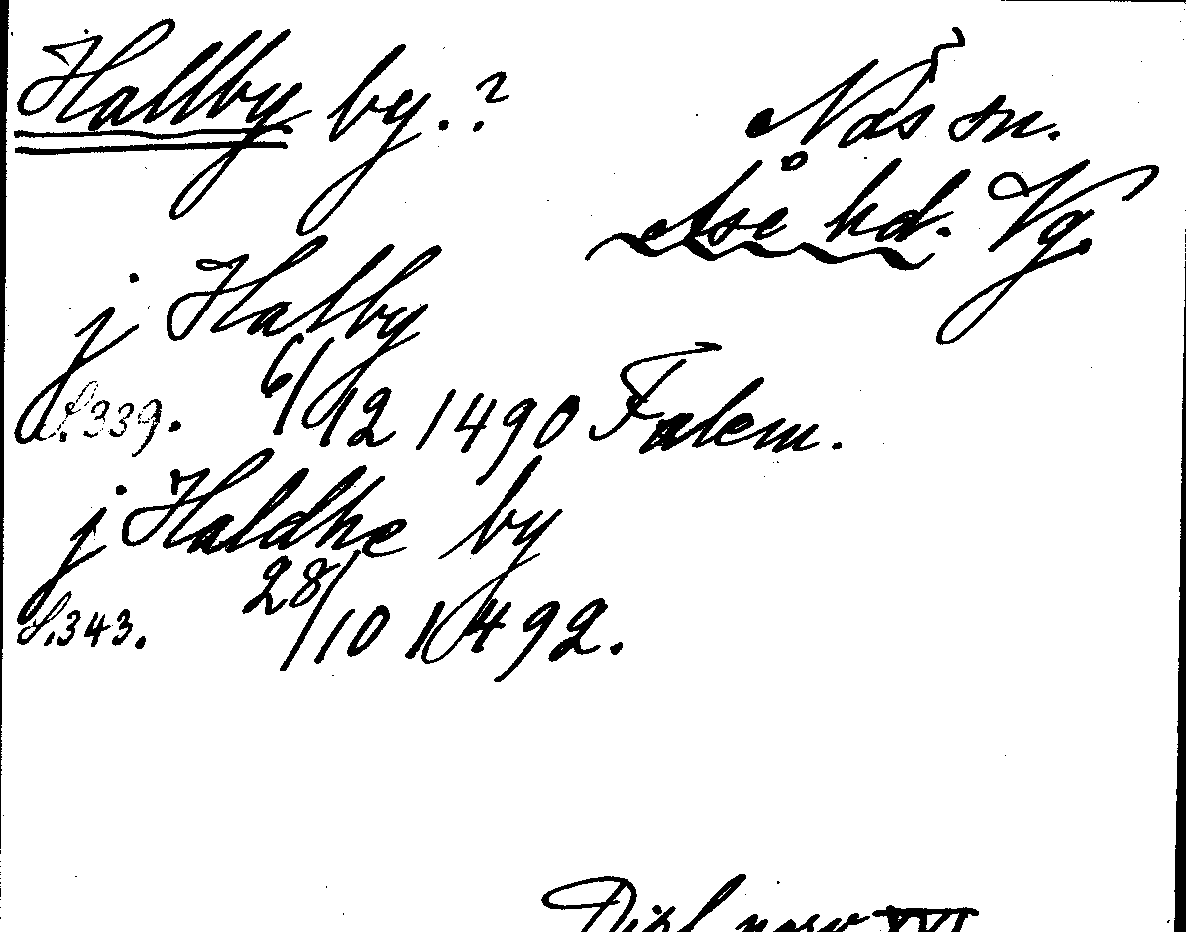 Hallby by.?
Näs sn.
Åse hd. Vg.
j Halby
S.339. 6/12 1490 Falem.
j Haldhe by
S.343. 28/10 1492.
Dipl. norv XVI